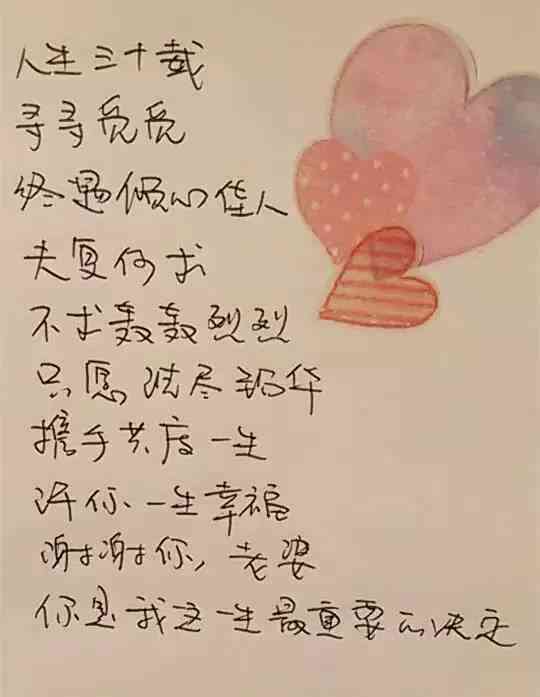 人生三十载
寻寻觅觅
终遇倾心佳人
夫复何求
不求轰轰烈烈
只愿洗尽铅华
携手共度一生
许你一生幸福
谢谢你,老婆
你是我这一生最重要的决定